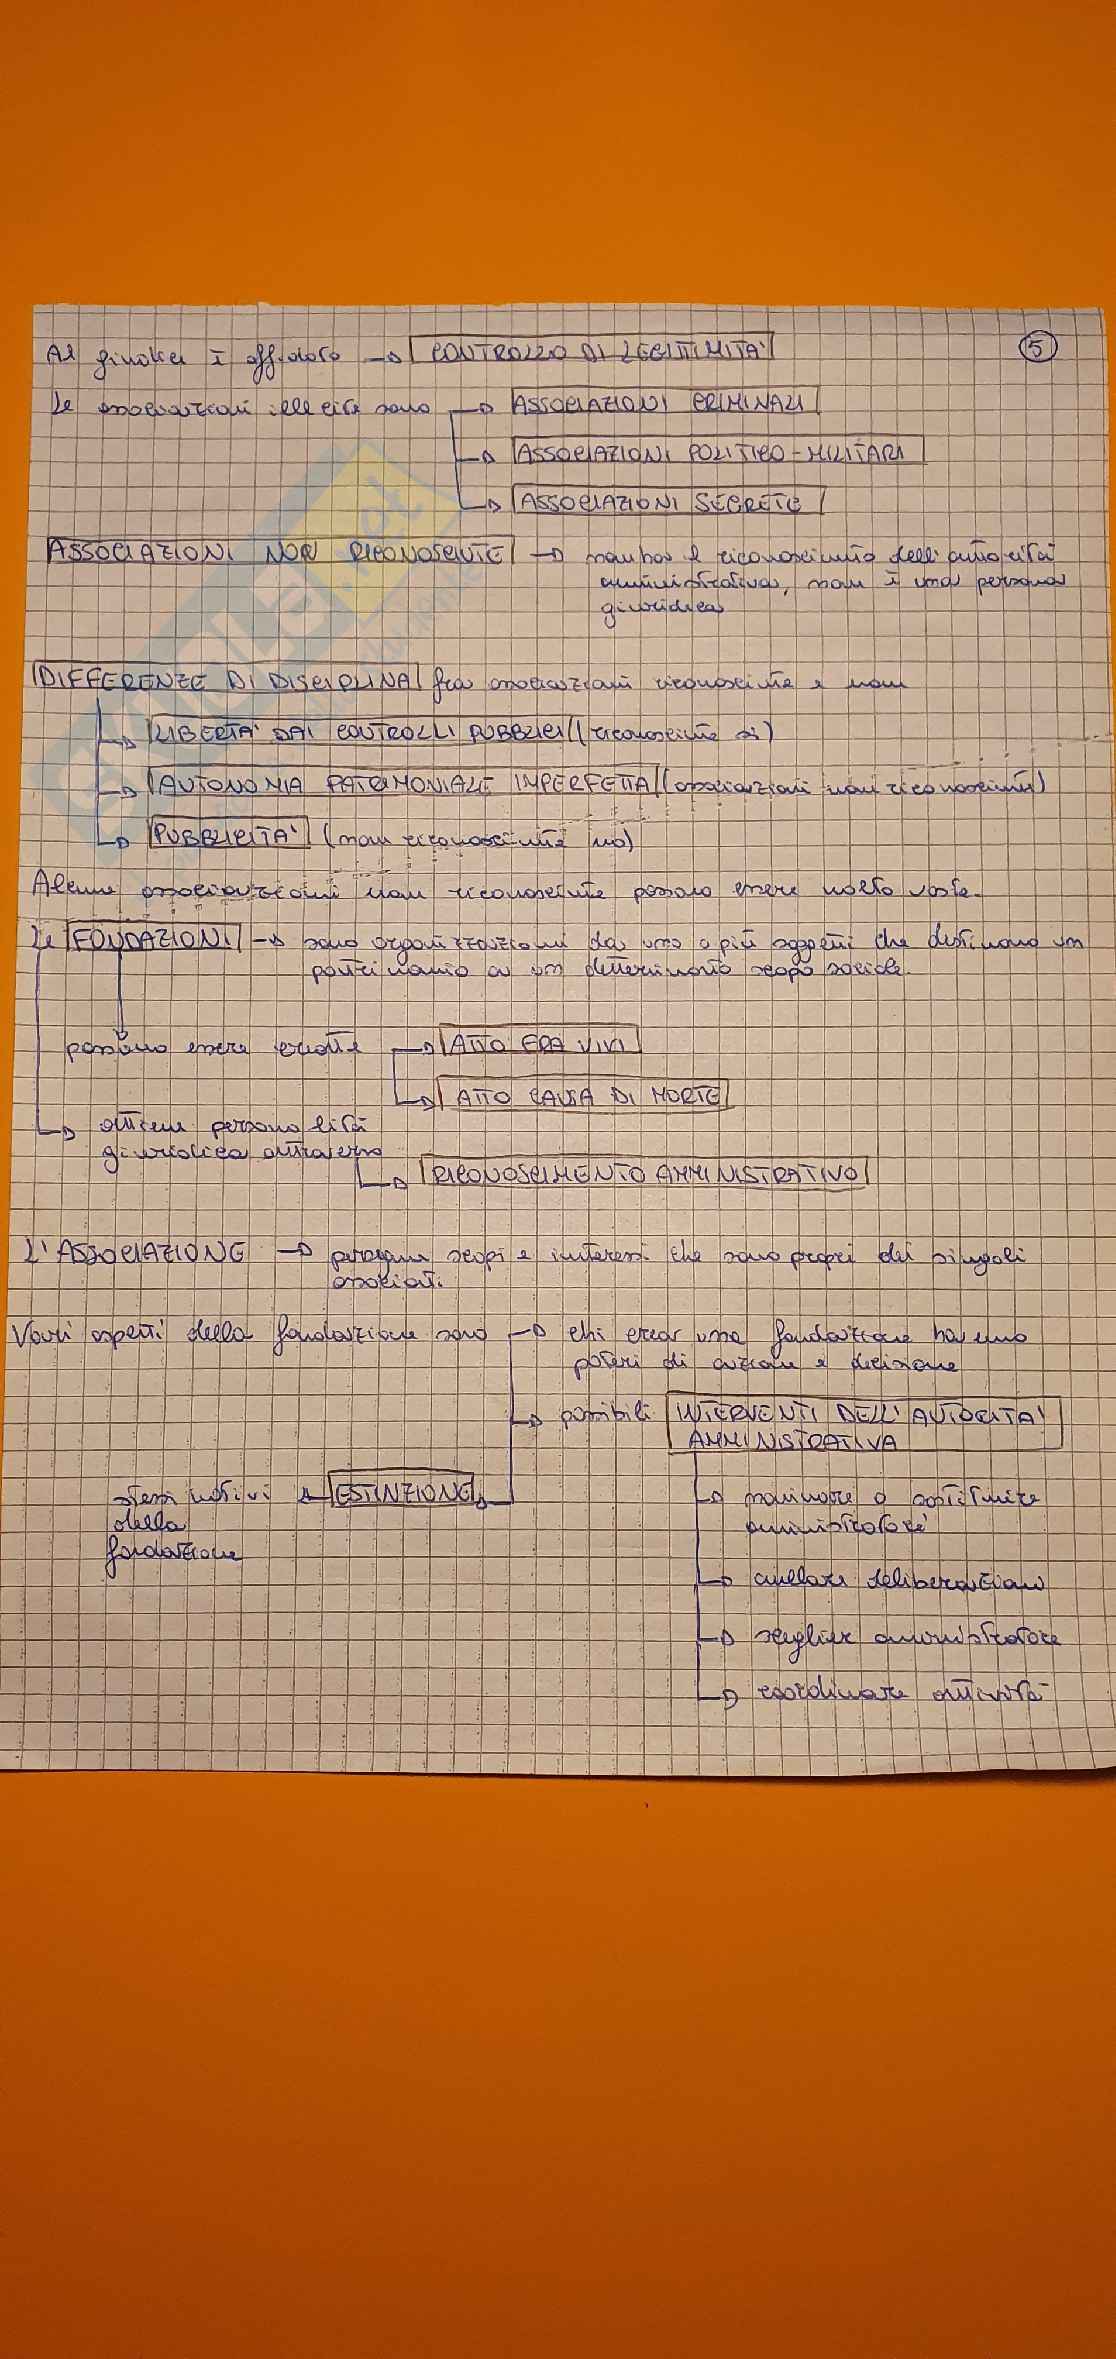 Al giudice è affidato → CONTROLLO DI LEGITTIMITA'
5
Le associazioni illecite sono → ASSOCIAZIONI CRIMINALI
→ ASSOCIAZIONI POLITICO-MILITARI
→ ASSOCIAZIONI SEGRETE
ASSOCIAZIONI NON RICONOSCIUTE → non ha il riconoscimento dell'autorità
amministrativa, non è una persona
giuridica
DIFFERENZE DI DISCIPLINA fra associazioni riconosciute e non
→ LIBERTA' DAI CONTROLLI PUBBLICI (riconosciute si)
→ AUTONOMIA PATRIMONIALE IMPERFETTA (associazioni non riconosciute)
→ PUBBLICITA' (non riconosciute no)
Alcune associazioni non riconosciute possono essere molto vaste.
Le FONDAZIONI → sono organizzazioni da uno o più soggetti che destinano un
patrimonio a un determinato scopo sociale.
possono essere create → ATTO FRA VIVI
→ ATTO CAUSA DI MORTE
→ ottiene personalità
giuridica attraverso
→ RICONOSCIMENTO AMMINISTRATIVO
L'ASSOCIAZIONE → persegue scopi e interessi che sono propri dei singoli
associati.
Vari aspetti della fondazione sono → chi crea una fondazione ha uno
poteri di azione e decisione
→ possibili INTERVENTI DELL'AUTORITA'
AMMINISTRATIVA
stessi motivi ← ESTINZIONE
della
fondazione
→ nominare o sostituire
amministratore
→ annullare deliberazioni
→ scegliere amministratore
→ coordinare attività